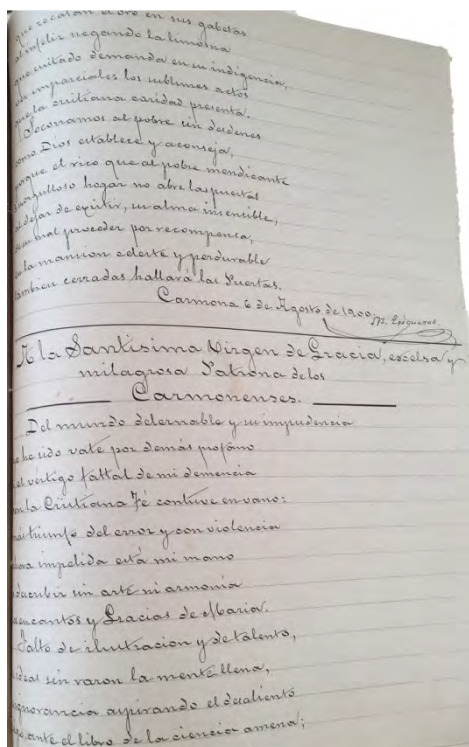 que recatan el oro en sus gabetas
al infeliz negando la limosna
que cuitado demanda en su indigencia,
imparciales los sublimes actos
que la cristiana caridad presenta.
Socorramos al pobre sin desdenes
como Dios establece y aconseja,
porque el rico que al pobre mendicante
orgulloso hogar no abre las puertas
al dejar de existir, su alma insensible,
su mal proceder por recompensa,
en la mansion celeste y perdurable
tambien cerradas hallará las Puertas.
Carmona 6 de Agosto de 1900
A la Santisima Virgen de Gracia, excelsa y
milagrosa Patrona de los
Carmonenses.
Del mundo delernable y su impudencia
he sido vate por demás profano
el vértigo fattal de mi demencia
con la Cristiana Fé contuve en vano:
triunfo del error y con violencia
ahora impelida está mi mano
describir sin arte ni armonia
encantos y Gracias de Maria.
Falto de ilustracion y de talento,
ideas sin varon la mente llena,
ignorancia aspirando el desaliento
que ante el libro de la ciencia amena;